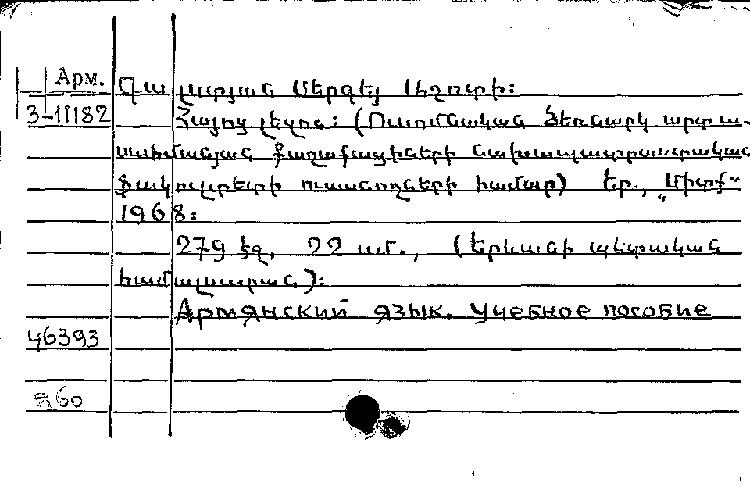 Арм.
3-11182
Գալստյան Սերգեյ Աշոտի:
Հայոց լեզու: (Ուսումնական ձեռնարկ արտա-
սահմանյան քաղաքացիների նախապատրաստական
ֆակուլտետի ուսանողների համար) Եր., „Միտք"
1968:
279 էջ, 22 սմ., (Երևանի պետական
համալսարան):
Армянский язык. Учебное пособие
46393
60